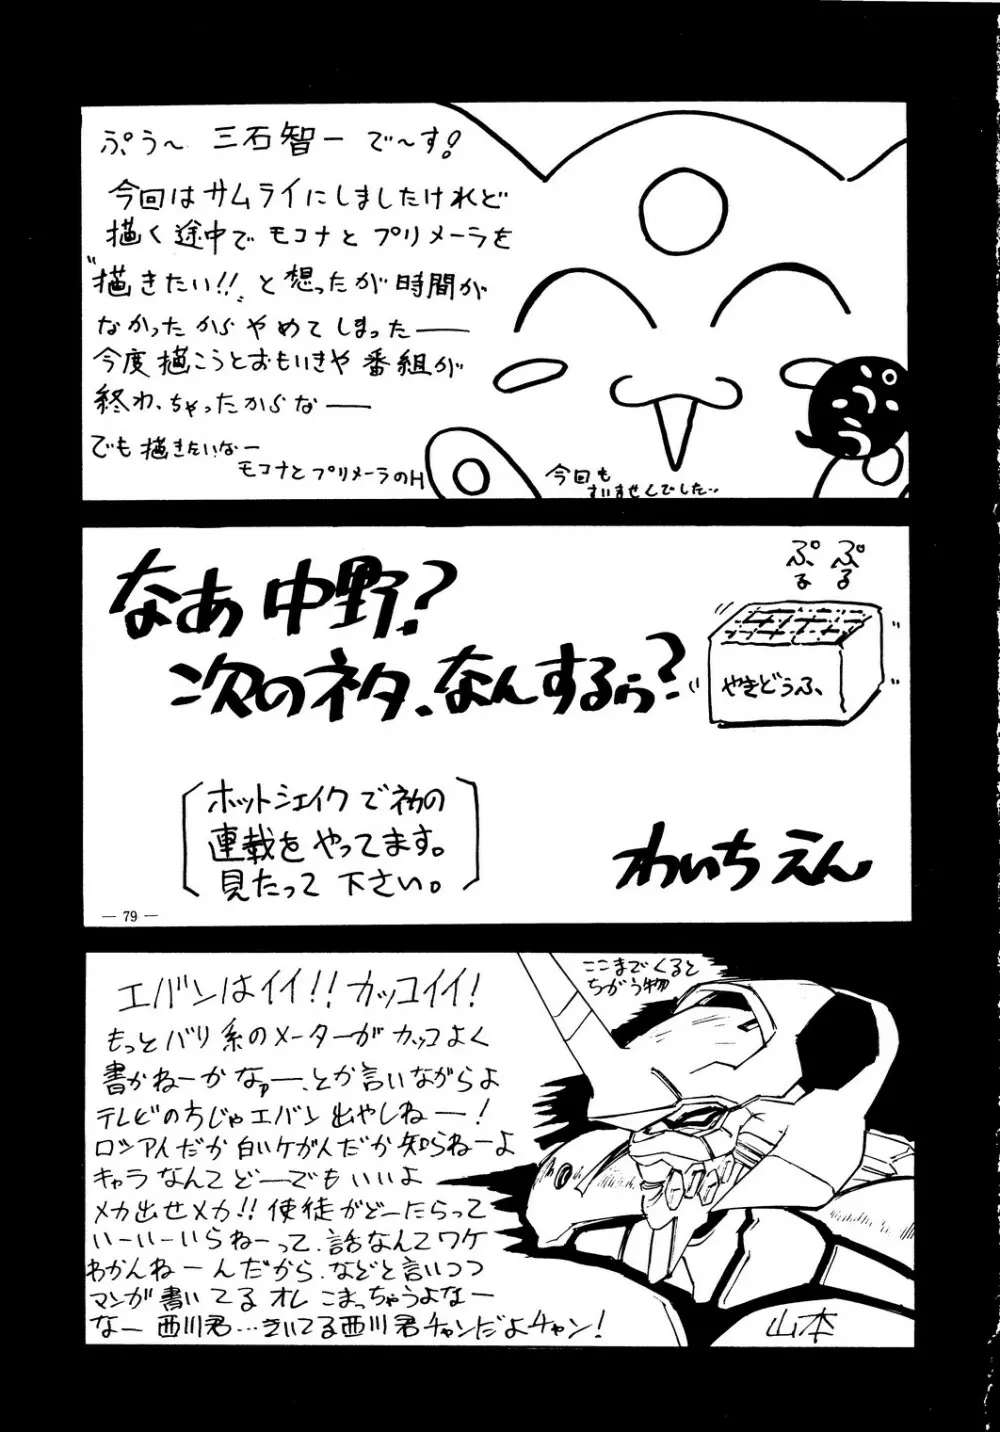 ぷぅ〜 三石智一 で〜す!
今回はサムライにしましたけれど
描く途中で モコナと プリメーラを
"描きたい!!" と想ったが時間が
なかったからやめてしまった——
今度描こうとおもいきや 番組が
終わっちゃったからな——
でも描きたいなー
モコナと プリメーラのH
今回も
すいませんでした…
なあ中野?
次のネタ、なんするぅ?
ぷる
ぷる
やきどうふ、
ホットシェイクで初の
連載をやってます。
見たって下さい。
わいち えん
— 79 —
エバンはイイ!! カッコイイ!
もっとバリ系のメーターがカッコよく
書かねーかなァー、とか言いながらよ
テレビのちじゃエバン出やしねー!
ロシアんだか白いケがんだか知らねーよ
キャラなんてどーでもいいよ
メカ出せメカ!! 使徒がどーたらって
いーいーいらねーって、話なんてワケ
わかんねーんだから、などと言いつつ
マンガ書いてるオレこまっちゃうよなー
なー 西川君…きいてる西川君チャンだよチャン!
ここまでくると
ちがう物
山本